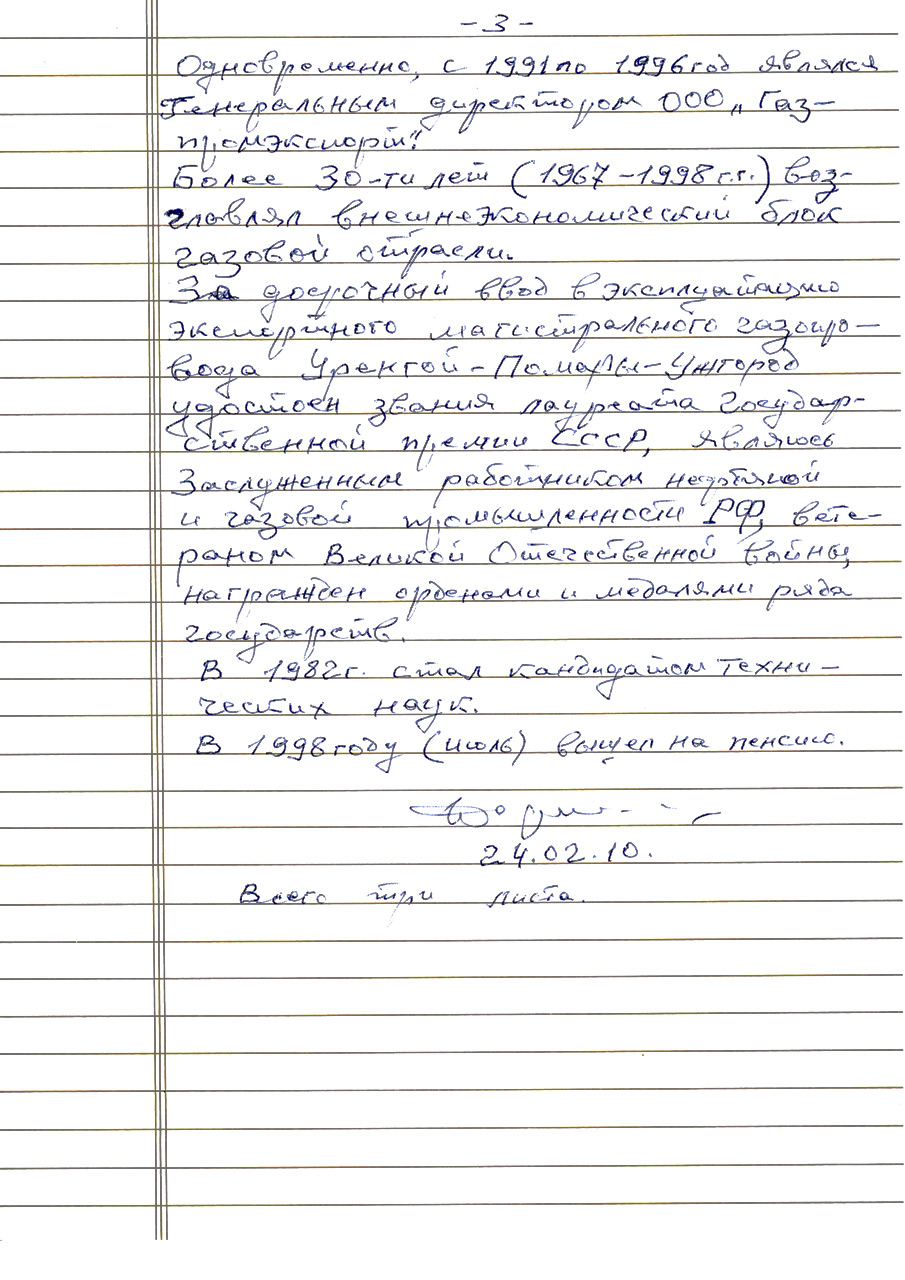 - 3 -
Одновременно, с 1991 по 1996 год являлся
Генеральным директором ООО „Газ-
промэкспорт".
Более 30-ти лет (1967-1998 г.г.) воз-
главлял внешнеэкономический блок
газовой отрасли.
За досрочный ввод в эксплуатацию
экспортного магистрального газопро-
вода Уренгой-Помары-Ужгород
удостоен звания лауреата Государ-
ственной премии СССР, являюсь
Заслуженным работником нефтяной
и газовой промышленности РФ, вете-
раном Великой Отечественной войны,
награжден орденами и медалями ряда
государств.
В 1982г. стал кандидатом техни-
ческих наук.
В 1998 году (июль) вышел на пенсию.
24.02.10.
Всего три листа.